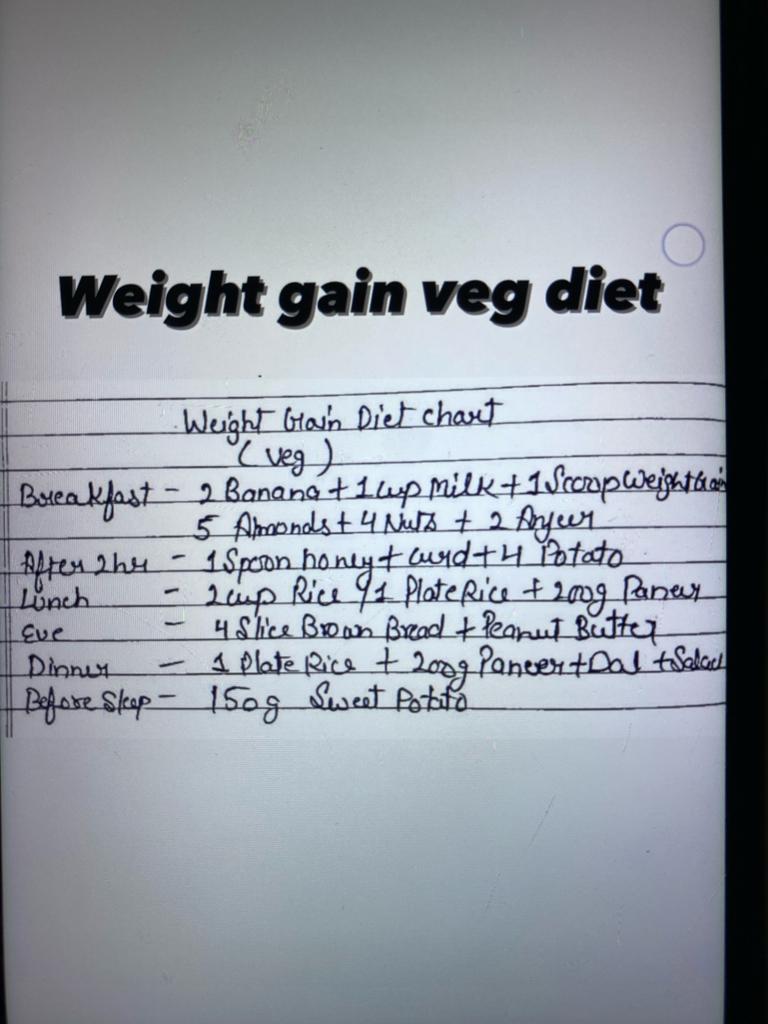 Weight gain veg diet
Weight Gain Diet chart
(veg)
Breakfast - 2 Banana + 1 cup Milk + 1 Scoop Weight Gain
5 Almonds + 4 Nuts + 2 Anjeer
After 2hr - 1 Spoon honey + curd + 4 Potato
Lunch - 2 cup Rice / 1 Plate Rice + 200g Paneer
Eve - 4 Slice Brown Bread + Peanut Butter
Dinner - 1 Plate Rice + 200g Paneer + Dal + Salad
Before Sleep - 150g Sweet Potato